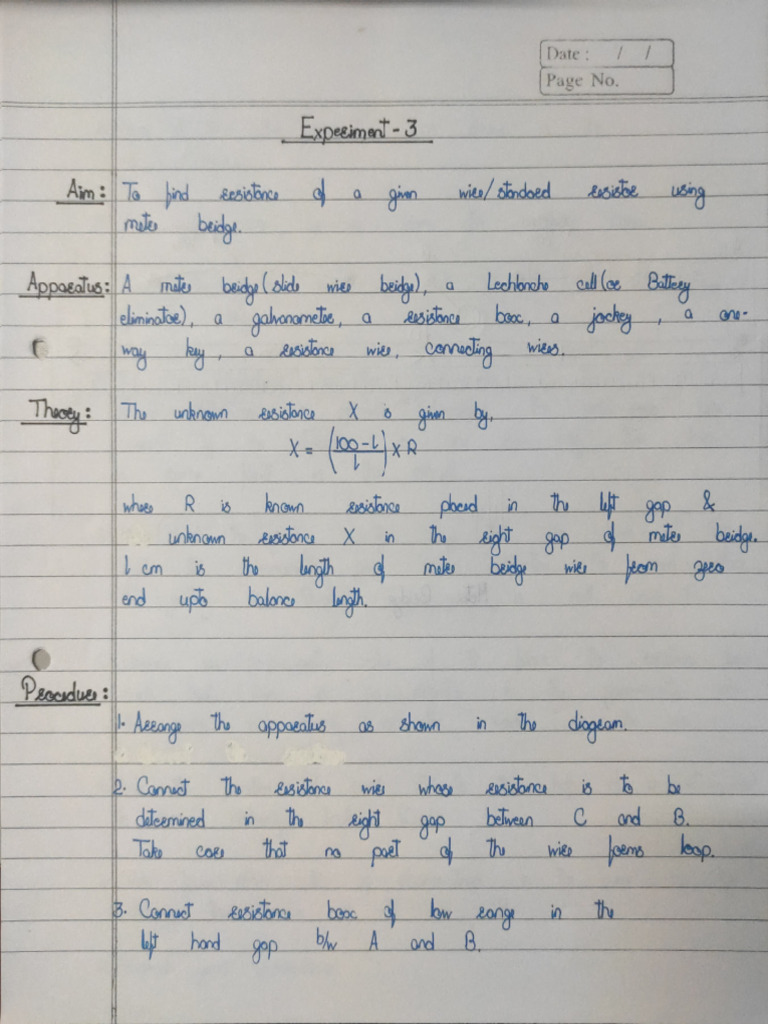 Date : / /
Page No.
Experiment - 3
Aim: To find resistance of a given wire/standard resistor using
meter bridge.
Apparatus: A meter bridge (slide wire bridge), a Lechlanche cell (or Battery
eliminator), a galvanometer, a resistance box, a jockey, a one-
way key, a resistance wire, connecting wires.
Theory: The unknown resistance X is given by,
X = ((100 - l)/l) × R
where R is known resistance placed in the left gap &
unknown resistance X in the right gap of meter bridge.
l cm is the length of meter bridge wire from zero
end upto balance length.
Procedure:
1. Arrange the apparatus as shown in the diagram.
2. Connect the resistance wire whose resistance is to be
determined in the right gap between C and B.
Take care that no part of the wire forms loop.
3. Connect resistance box of low range in the
left hand gap b/w A and B.